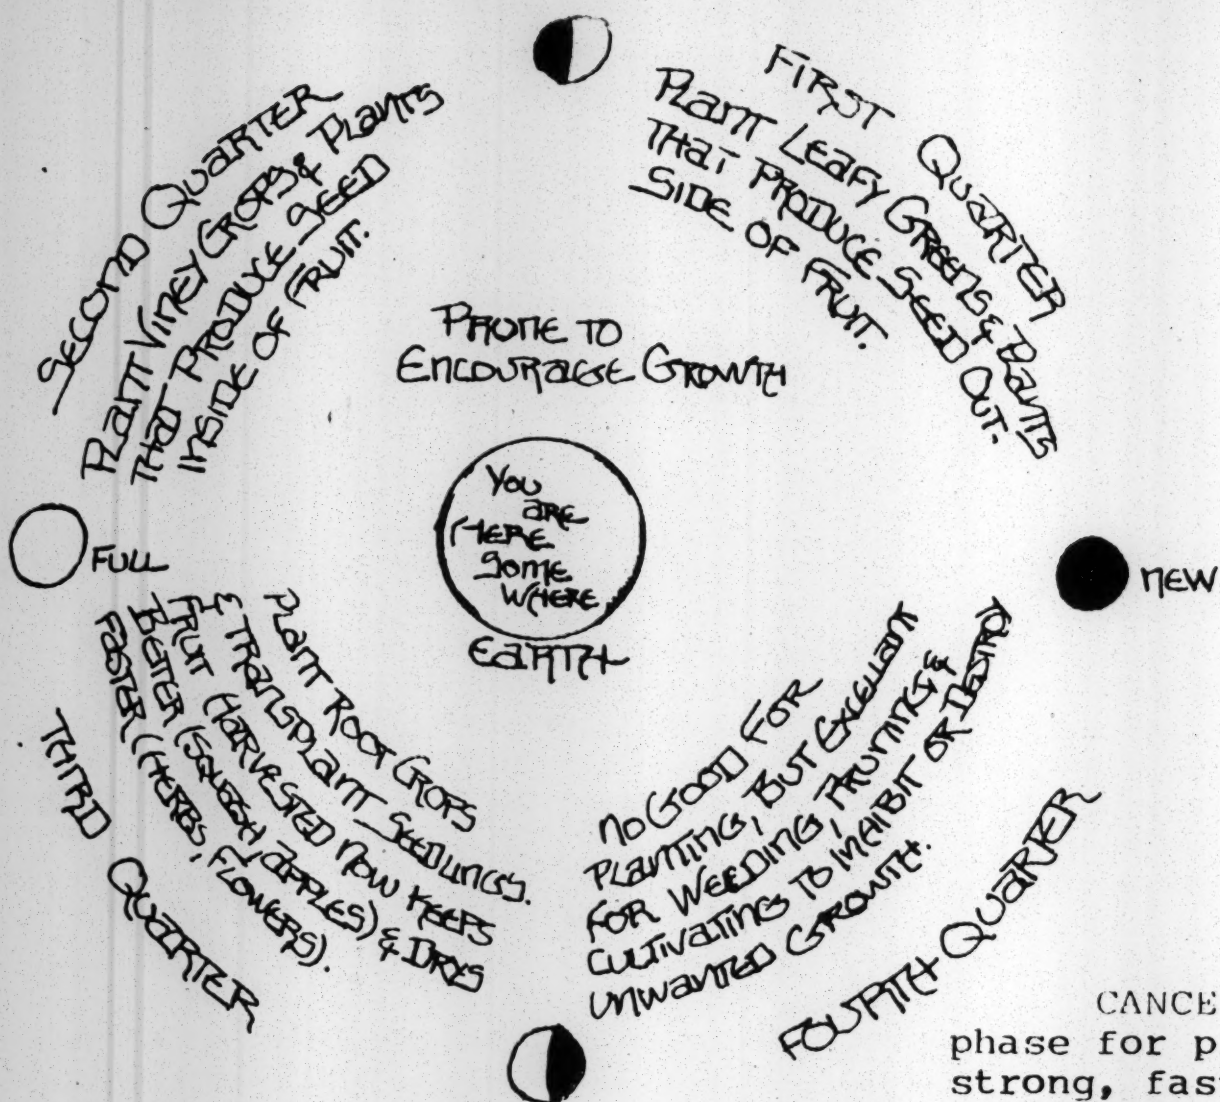 FIRST QUARTER
PLANT LEAFY GREENS & PLANTS
THAT PRODUCE SEED OUT-
SIDE OF FRUIT.
SECOND QUARTER
PLANT VINEY CROPS & PLANTS
THAT PRODUCE SEED
INSIDE OF FRUIT.
PRUNE TO
ENCOURAGE GROWTH
YOU
ARE
HERE
SOME
WHERE
EARTH
FULL
NEW
PLANT ROOT CROPS
& TRANSPLANT SEEDLINGS.
FRUIT HARVESTED NOW KEEPS
BETTER (SQUASH, APPLES) & DRYS
FASTER (HERBS, FLOWERS).
THIRD QUARTER
NO GOOD FOR
PLANTING, BUT EXCELLANT
FOR WEEDING, PRUNING, &
CULTIVATING TO INHIBIT OR DESTROY
UNWANTED GROWTH.
FOURTH QUARTER
CANCE
phase for p
strong, fas